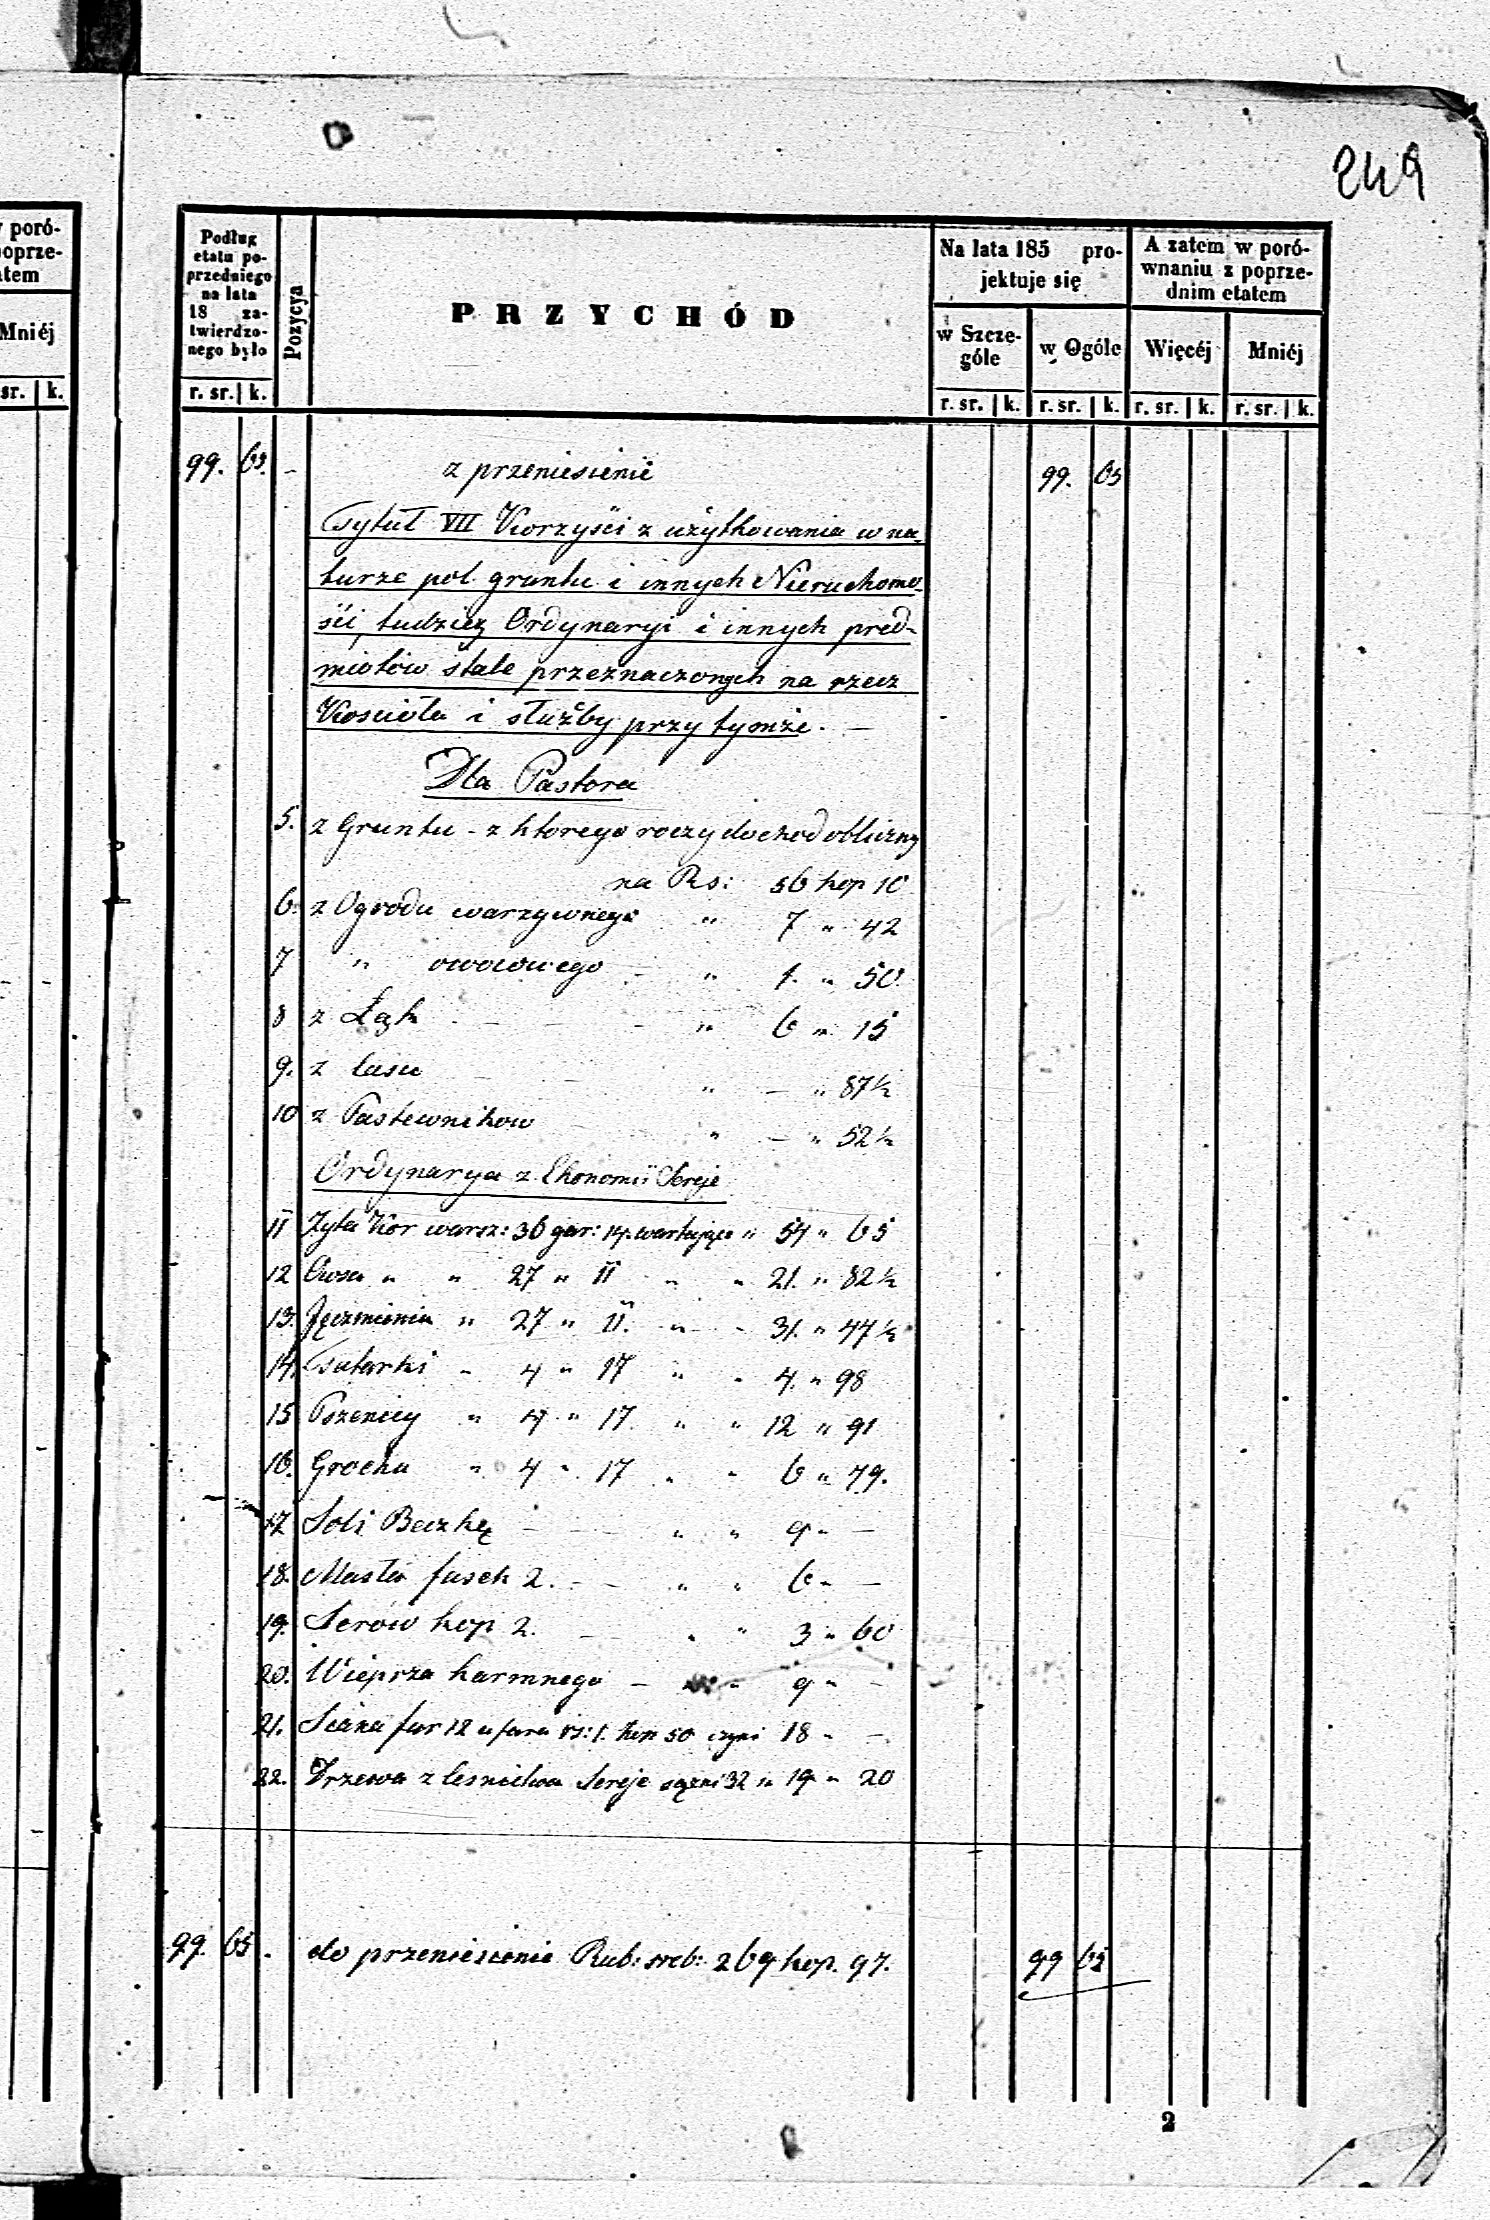 249
y poró-
poprze-
atem
Mniéj
sr. k.
Podług
etatu po-
przedniego
na lata
18 za-
twierdzo-
nego było
r. sr. k.
Pozycya
PRZYCHÓD
Na lata 185 pro-
jektuje się
w Szcze-
góle
r. sr. k.
w Ogóle
r. sr. k.
A zatem w poró-
wnaniu z poprze-
dnim etatem
Więcéj
r. sr. k.
Mniéj
r. sr. k.
99. 65. - z przeniesienie 99. 65
Tytuł VII Korzyści z użytkowania w na-
turze pol gruntu i innych Nieruchomo-
ści, tudzież Ordynaryi i innych pred-
miotów stale przeznaczonych na rzecz
Kościoła i służby przy tymże. —
Dla Pastora
5. z Gruntu - z którego roczy dochod obliczny
na Rs: 56 kop 10
6. z Ogrodu warzywnego " 7 " 42
7 " owocowego - " 1. " 50
8 z Łąk - - - " 6 " 15
9. z lasu - - " — " 87½
10 z Pastewnikow " — " 52½
Ordynarya z Ekonomii Sereje
11 Żyta Kor warsz: 36 gar: 14. wartujące " 54 " 65
12 Owsa " " 27 " 11 " " 21. " 82½
13. Jęczmienia " 27 " 11. " " 31. " 47½
14. Tatarki " 4 " 17 " " 4. " 98
15 Pszenicy " 4 " 17. " " 12 " 91
16. Grochu " 4 " 17 " " 6 " 79.
17. Soli Beczkę - - " " 9 " —
18. Masła fasek 2. - - " " 6 " —
19. Serów kop 2. - " " 3 " 60
20. Wieprza karmnego - " " 9 " —
21. Siana fur 12 a fura rs: 1. kop 50 czyni 18 " —
22. Drzewa z lesnictwa Sereje sążni 32 " 19 " 20
99. 65. do przeniesienia Rub: sreb: 269 kop. 97. 99 65
2